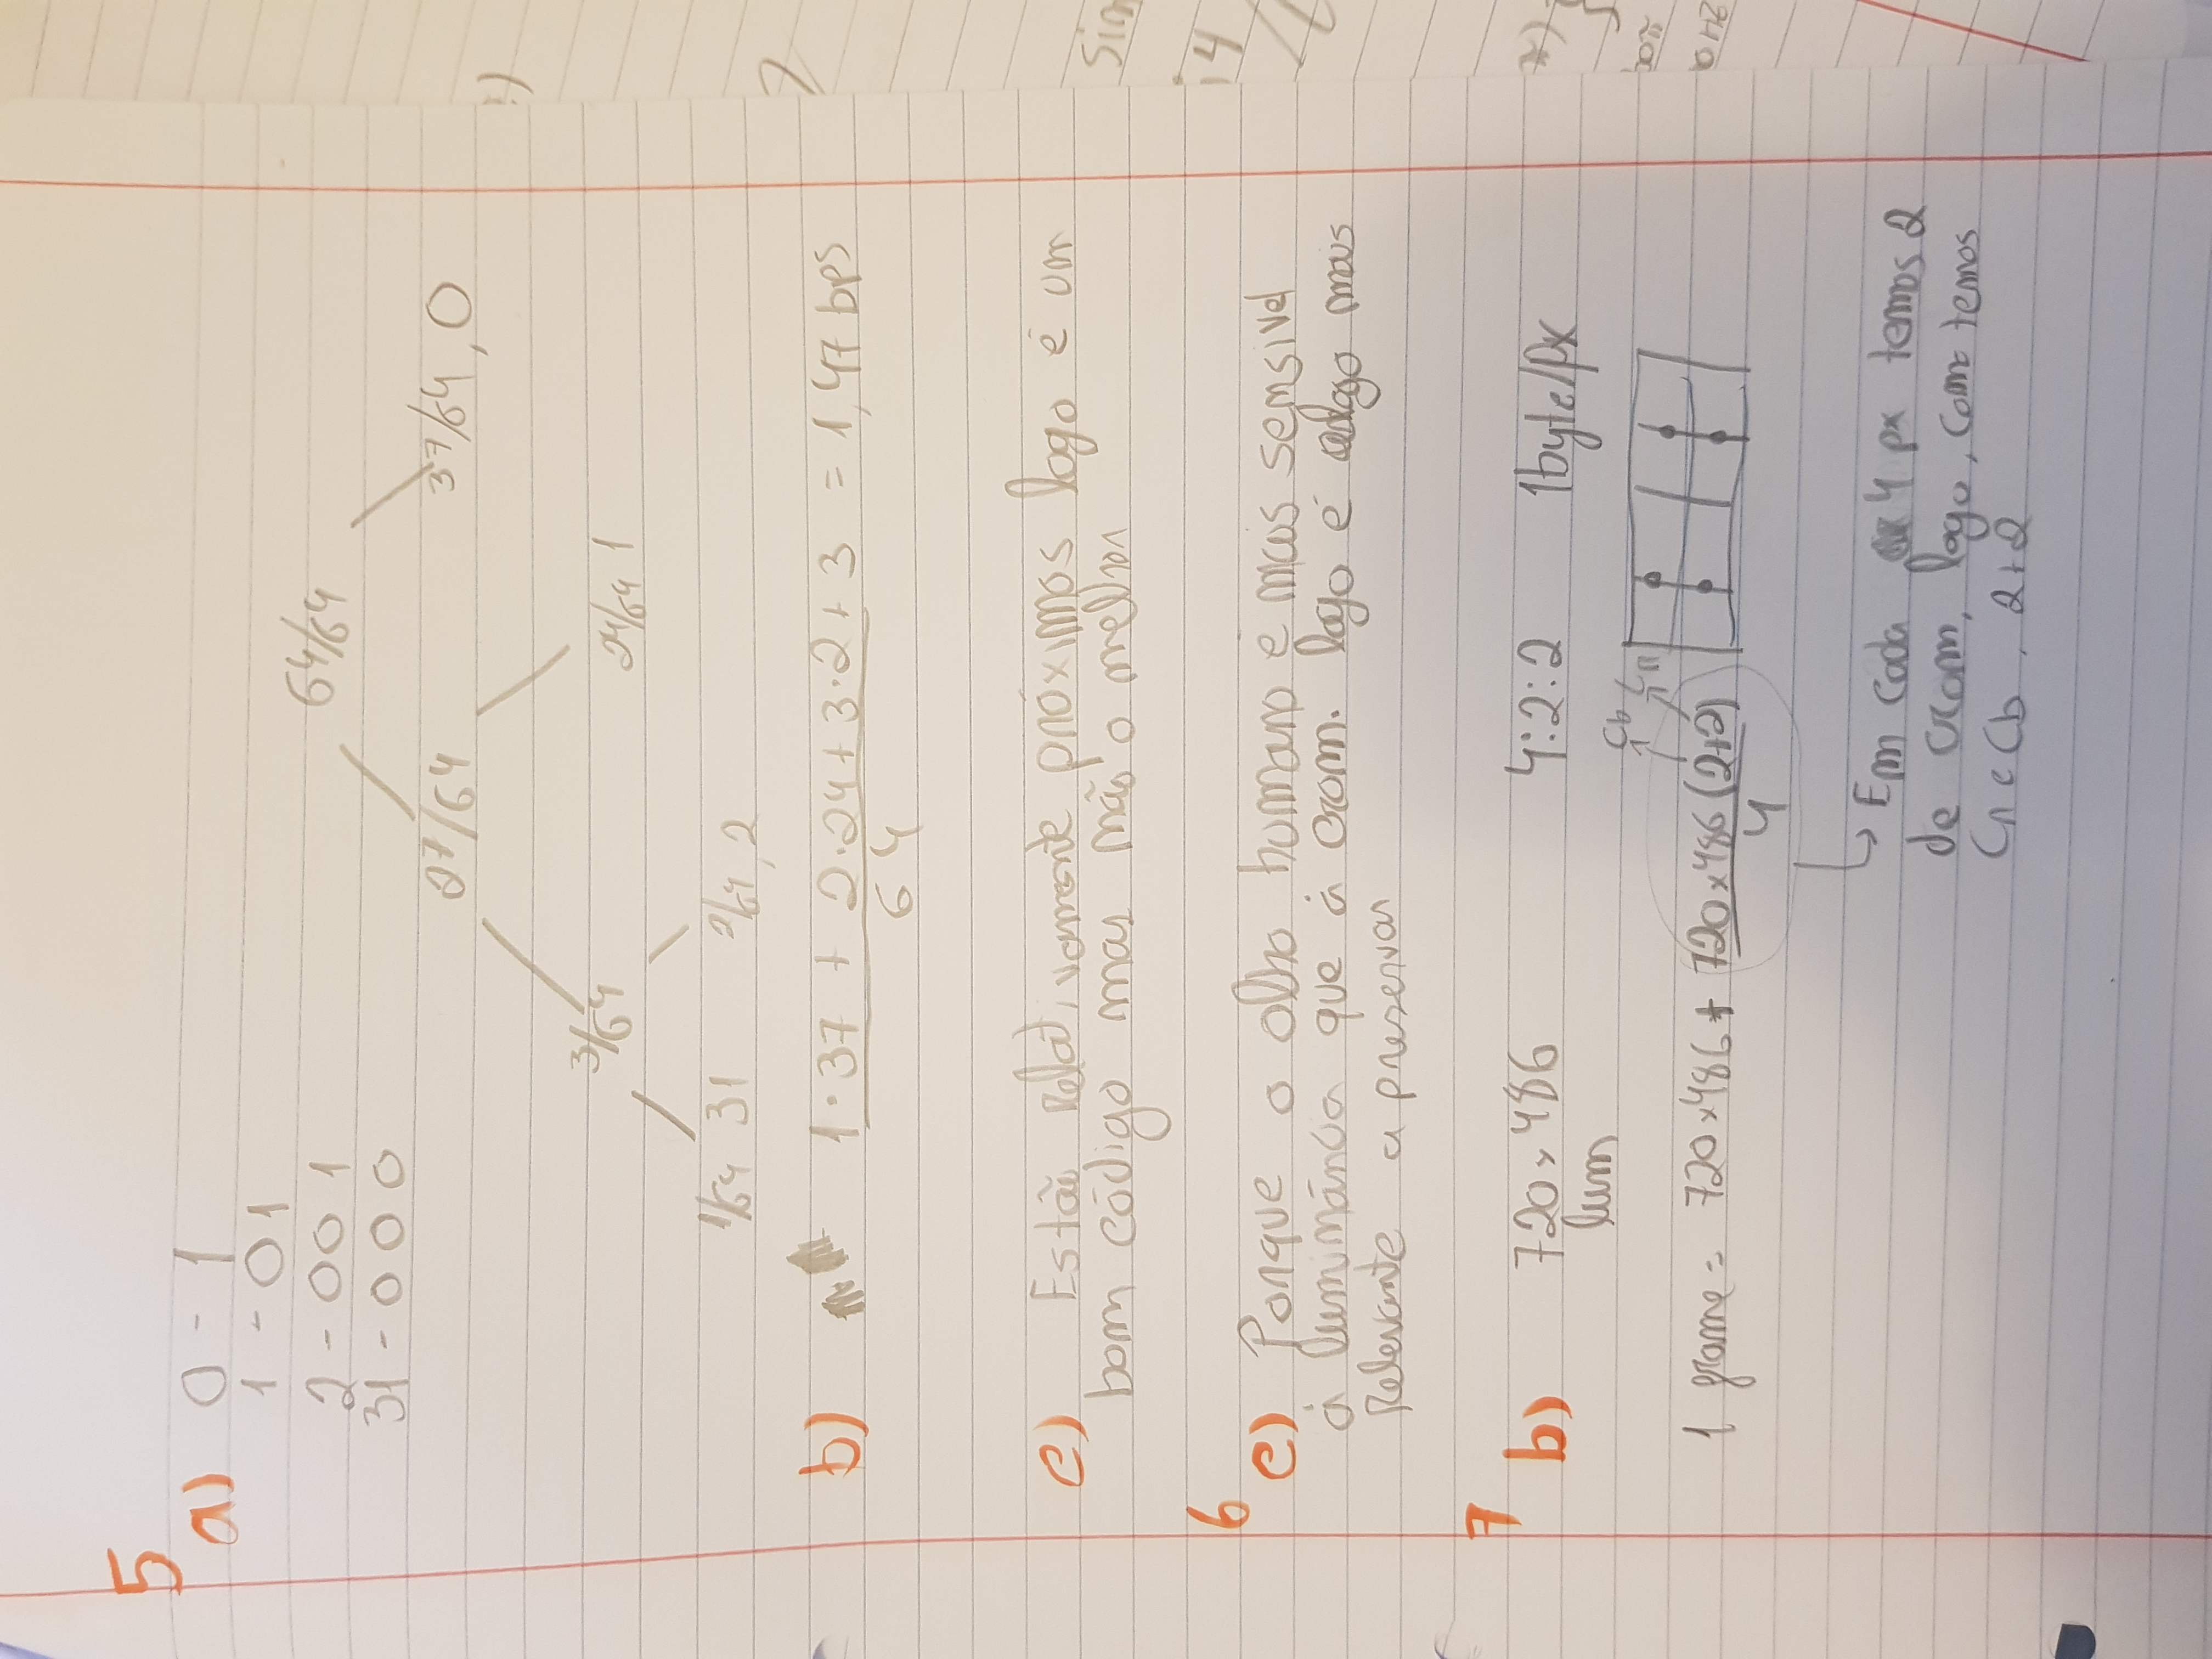 5
a) 0 - 1
1 - 01
2 - 001
31 - 000
64/64
27/64
37/64, 0
3/64
24/64 1
1/64 31
2/64, 2
b) 1·37 + 2·24 + 3·2 + 3 = 1,47 bps
64
c) Estão relativamente próximos logo é um
bom código mas não o melhor
6
c) Porque o olho humano é mais sensivel
á luminância que á crom. logo é algo mais
relevante a preservar
7
b) 720 x 486 4:2:2 1byte/px
lum
Cb Cr
1 frame = 720x486 + 720x486 (2+2)
4
↳ Em cada 4 px temos 2
de crom, logo, como temos
Cr e Cb, 2+2